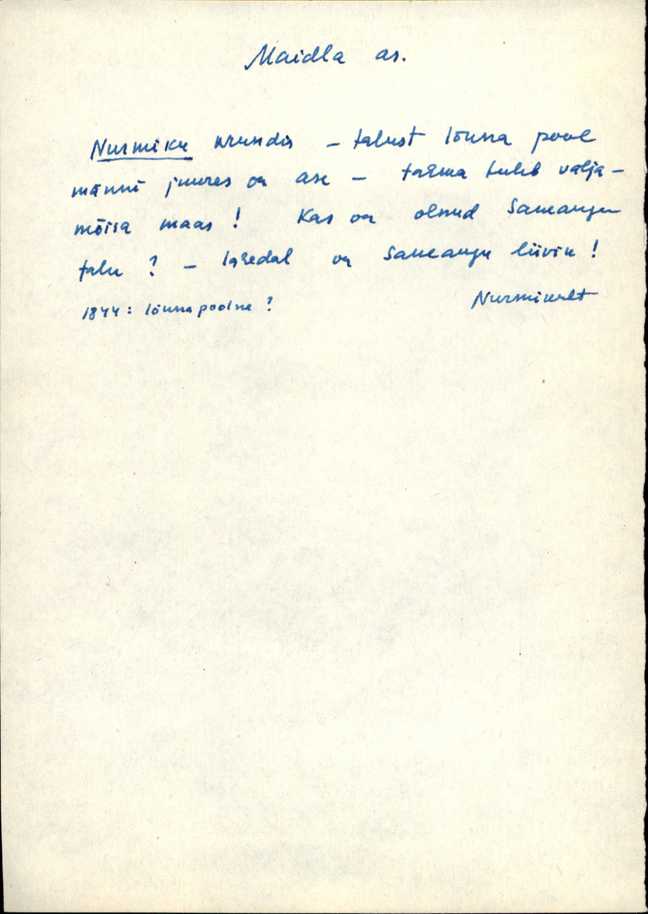 Maidla as.
Nurmiku krundis – talust lõuna pool
männi juures on ase – tahma tuleb välja –
mõisa maas! Kas on olnud Saueaugu
talu? – lähedal on Saueaugu liiviku!
1844: lõunapoolne? Nurmikult